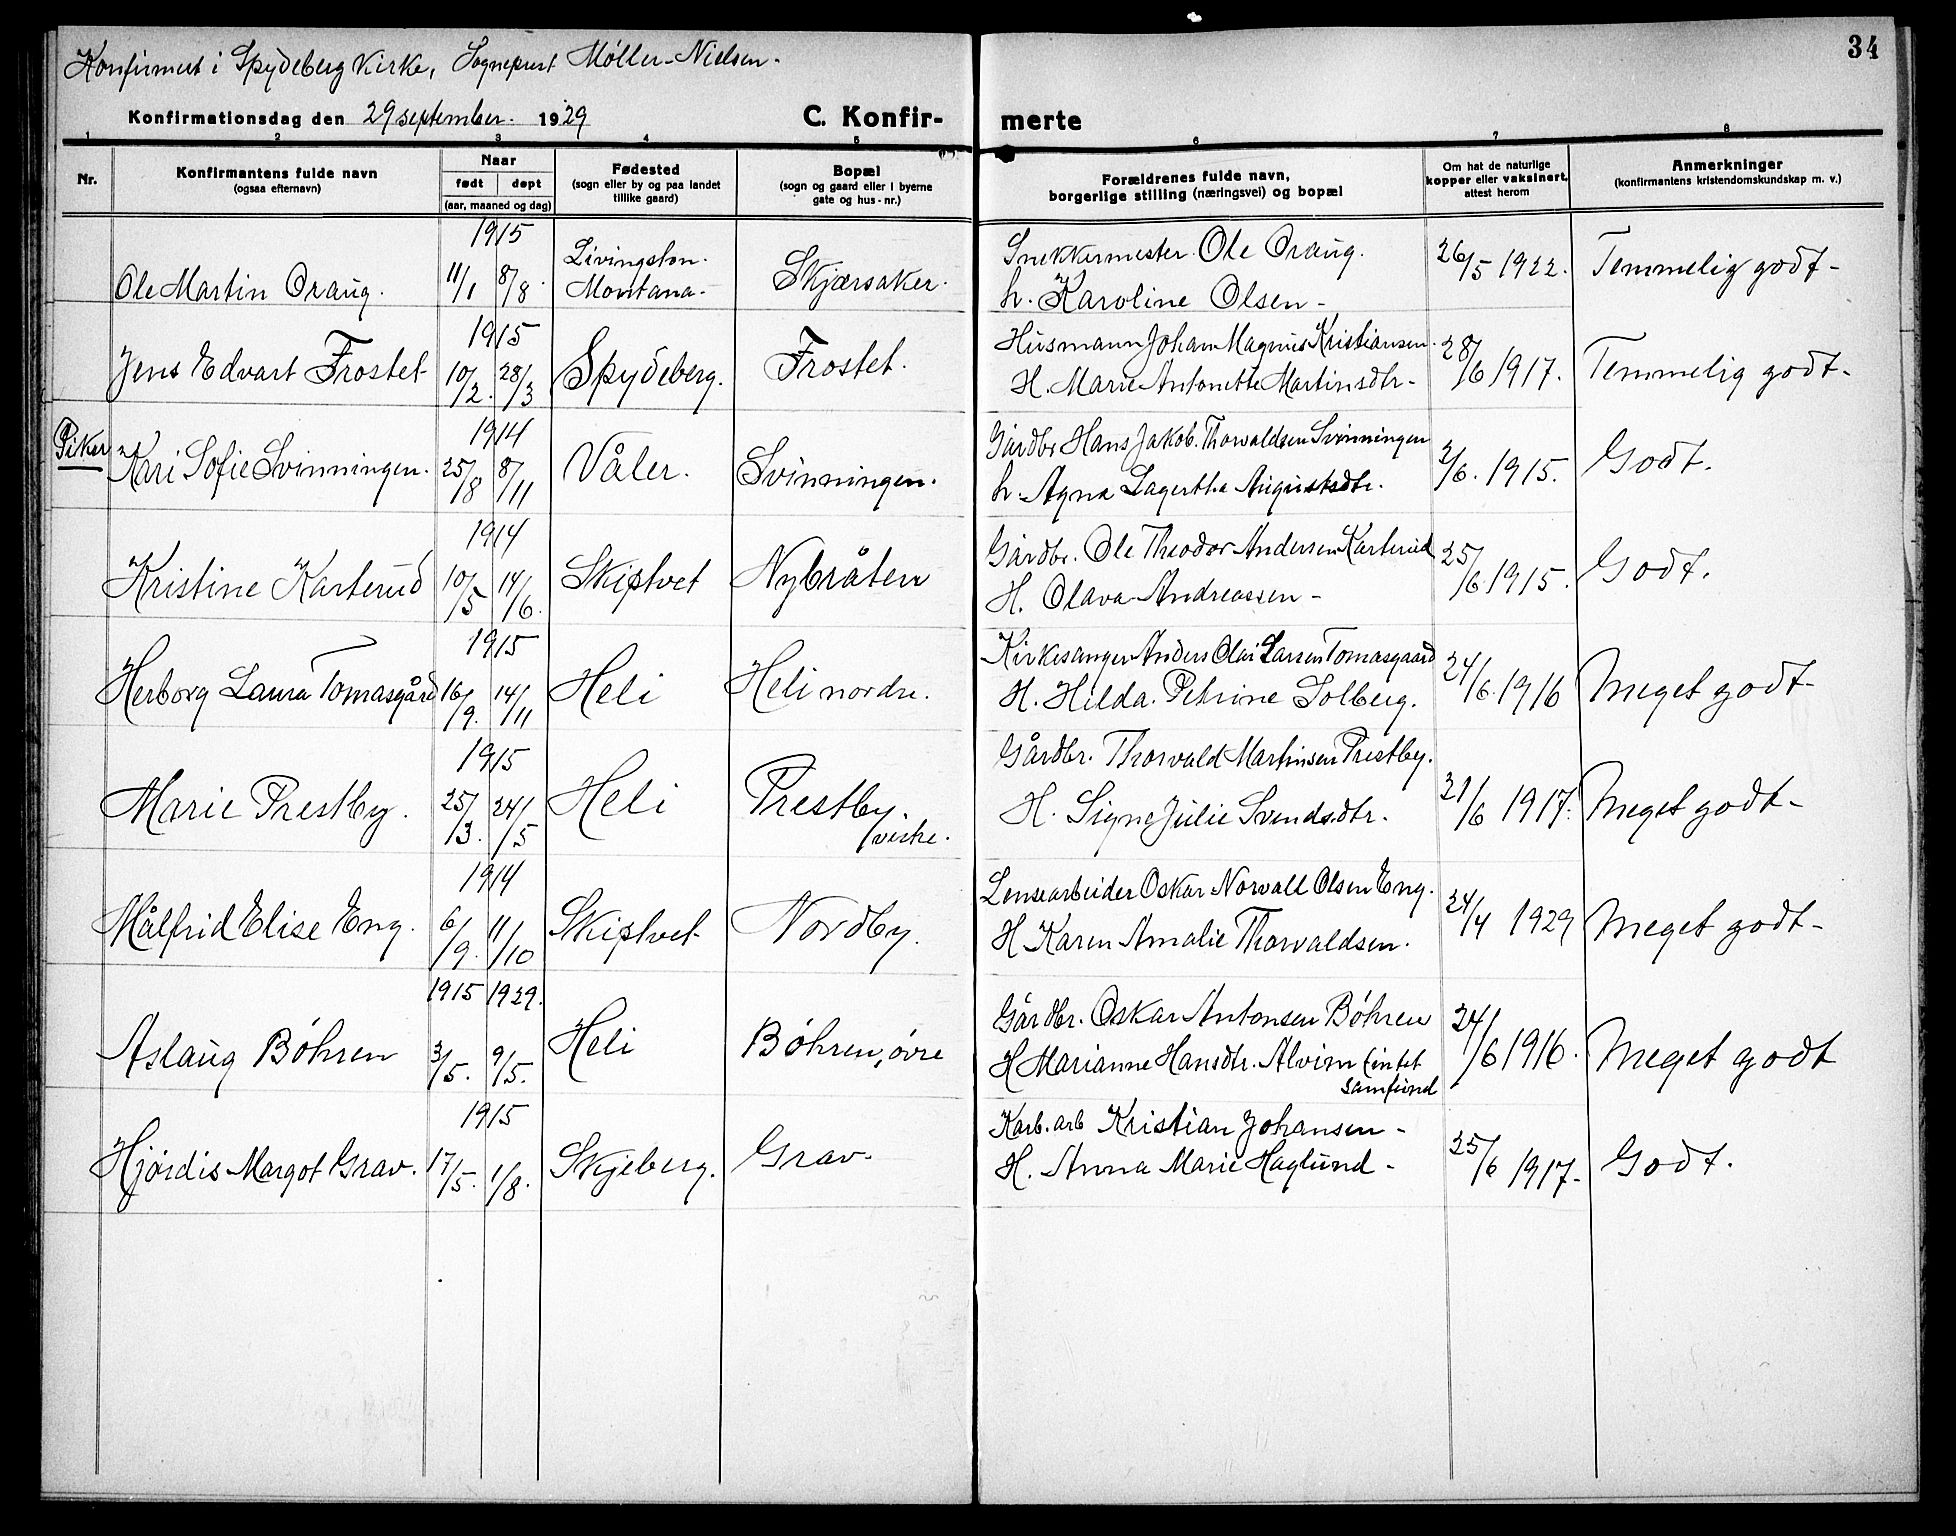 34
Konfirmert i Spydeberg Kirke, Sogneprest Møller-Nielsen.
Konfirmationsdag den 29 september. 1929
C. Konfirmerte
1 2 3 4 5 6 7 8
Nr.
Konfirmantens fulde navn
(ogsaa efternavn)
Naar
født døpt
(aar, maaned og dag)
Fødested
(sogn eller by og paa landet
tillike gaard)
Bopæl
(sogn og gaard eller i byerne
gate og hus-nr.)
Forældrenes fulde navn,
borgerlige stilling (næringsvei) og bopæl
Om hat de naturlige
kopper eller vaksinert,
attest herom
Anmerkninger
(konfirmantens kristendomskundskap m. v.)
1915 Livingston. Snekkermester Ole Oraug.
Ole Martin Oraug. 11/1 8/8. Montana- Skjærsaker. h. Karoline Olsen- 26/5 1922. Temmelig godt-
1915 Husmann Johan Magnus Kristiansen.
Jens Edvart Frostet 10/2. 28/3 Spydeberg. Frostet. H. Marie Antonette Martinsdtr- 28/6 1917. Temmelig godt-
Piker
1914 Gårdbr Hans Jakob. Thorvaldsen Svinningen
Kari Sofie Svinningen. 25/8 8/11 Våler. Svinningen. h. Agna Lagertha Augustsdtr. 2/6. 1915. Godt.
1914 Gårdbr. Ole Theodor Andersen Karterud
Kristine Karterud 10/5 14/6. Skiptvet Nybråten H. Olava Andreassen- 25/6 1915. Godt.
1915 Kirkesanger Anders Olai Larsen Tomasgaard
Herborg Laura Tomasgård 16/9. 14/11 Heli Heli nordre. H. Hilda. Petrine Solberg. 24/6. 1916 Meget godt-
1915 Gårdbr. Thorvald Martinsen Prestby.
Marie Prestby. 25/3. 24/5 Heli Prestby. H. Signe Julie Svendsdtr. 21/6 1917. Meget godt-
vestre.
1914 Lensearbeider Oskar Norvall Olsen Eng.
Målfrid Elise Eng. 6/9. 11/10 Skiptvet Nordby. H Karen Amalie Thorvaldsen. 24/4 1929 Meget godt-
1915 1929. Gårdbr. Oskar Antonsen Bøhren
Aslaug Bøhren 3/5. 9/5. Heli Bøhren, øvre H Marianne Hansdtr. Alvim (intet 24/6 1916. Meget godt
samfund
1915 Karb. arb Kristian Johansen-
Hjørdis Margot Grav. 17/5. 1/8. Skjeberg. Grav- H. Anna Marie Haglund- 25/6 1917- Godt.